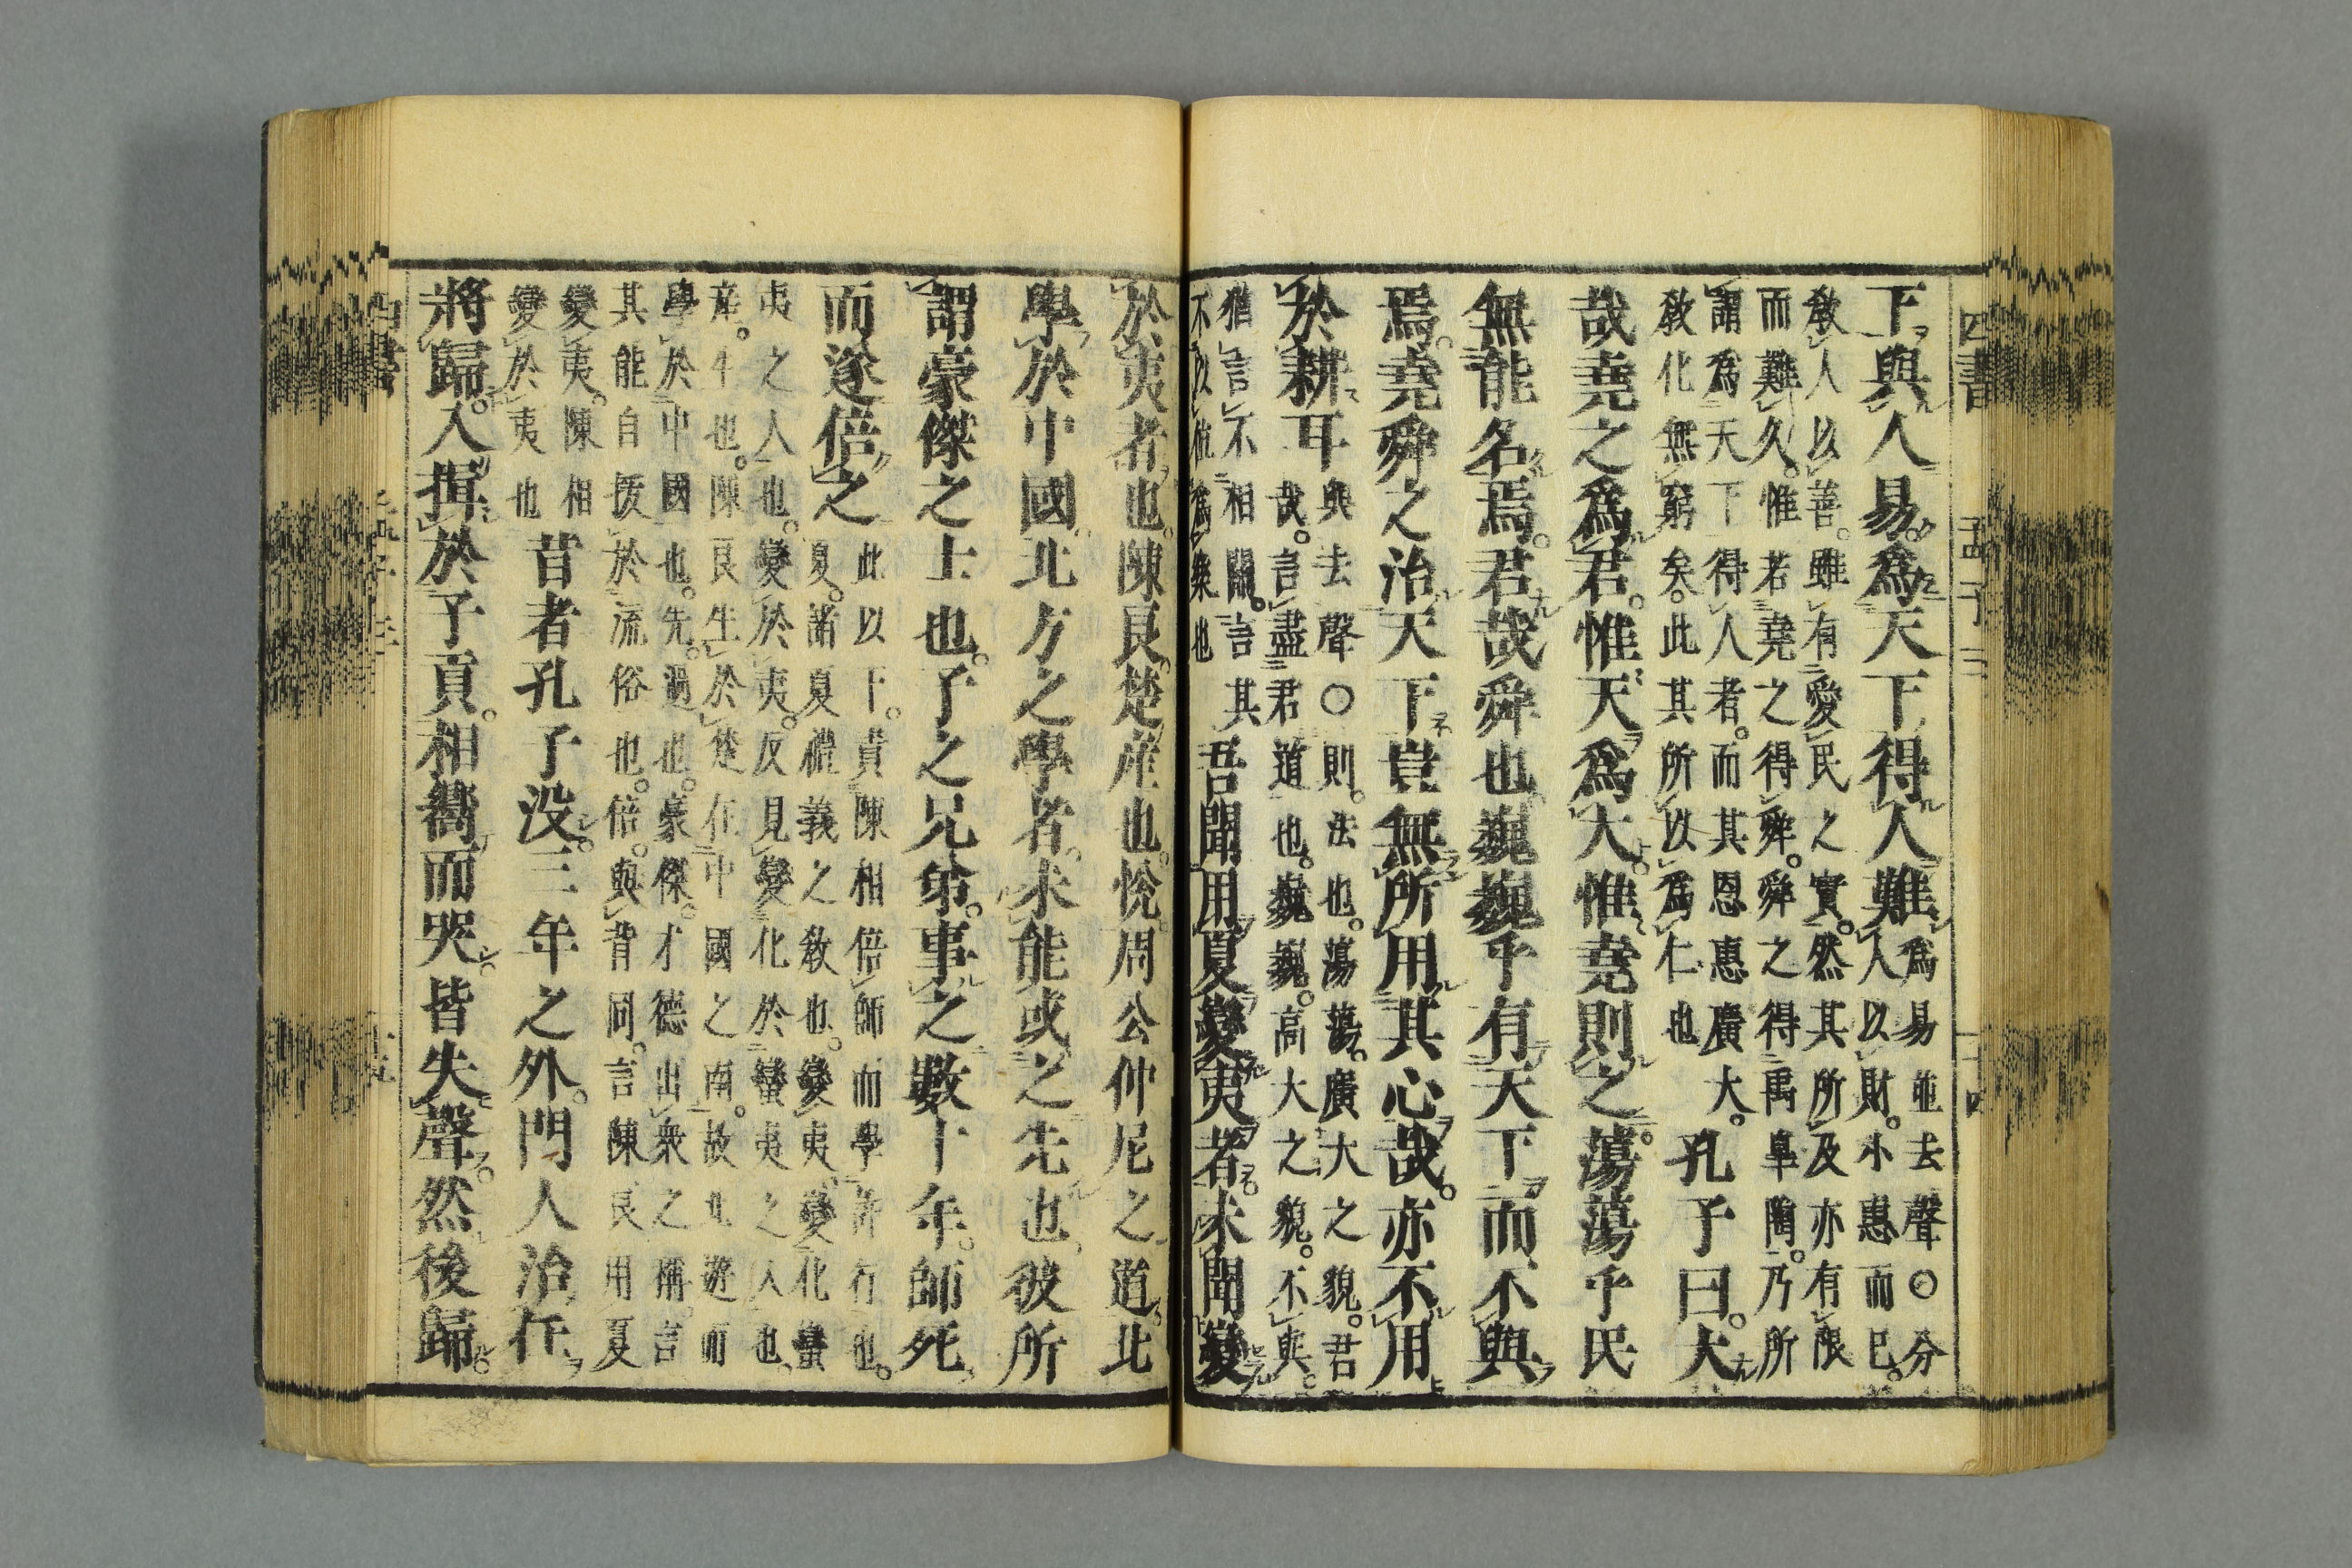 四書 孟子三 二十四
下與人易爲天下得人難爲易並去聲○分
人以財小惠而已
教人以善雖有愛民之實然其所及亦有限
而難久惟若堯之得舜舜之得禹臯陶乃所
謂爲天下得人者而其恩惠廣大
教化無窮矣此其所以爲仁也孔子曰大
哉堯之爲君惟天爲大惟堯則之蕩蕩乎民
無能名焉君哉舜也巍巍乎有天下而不與
焉堯舜之治天下豈無所用其心哉亦不用
於耕耳與去聲○則法也蕩蕩廣大之貌君
哉言盡君道也巍巍高大之貌不與
猶言不相關言其
不以位爲樂也吾聞用夏變夷者未聞變
於夷者也陳良楚産也悅周公仲尼之道北
學於中國北方之學者未能或之先也彼所
謂豪傑之士也子之兄弟事之數十年師死
而遂倍之此以下責陳相倍師而學許行也
夏諸夏禮義之教也變夷變化蠻
夷之人也變於夷反見變化於蠻夷之人也
産生也陳良生於楚在中國之南故北遊而
學於中國也先過也豪傑才德出衆之稱言
其能自拔於流俗也倍與背同言陳良用夏
變夷陳相
變於夷也昔者孔子没三年之外門人治任
將歸入揖於子貢相嚮而哭皆失聲然後歸
四書 孟子三